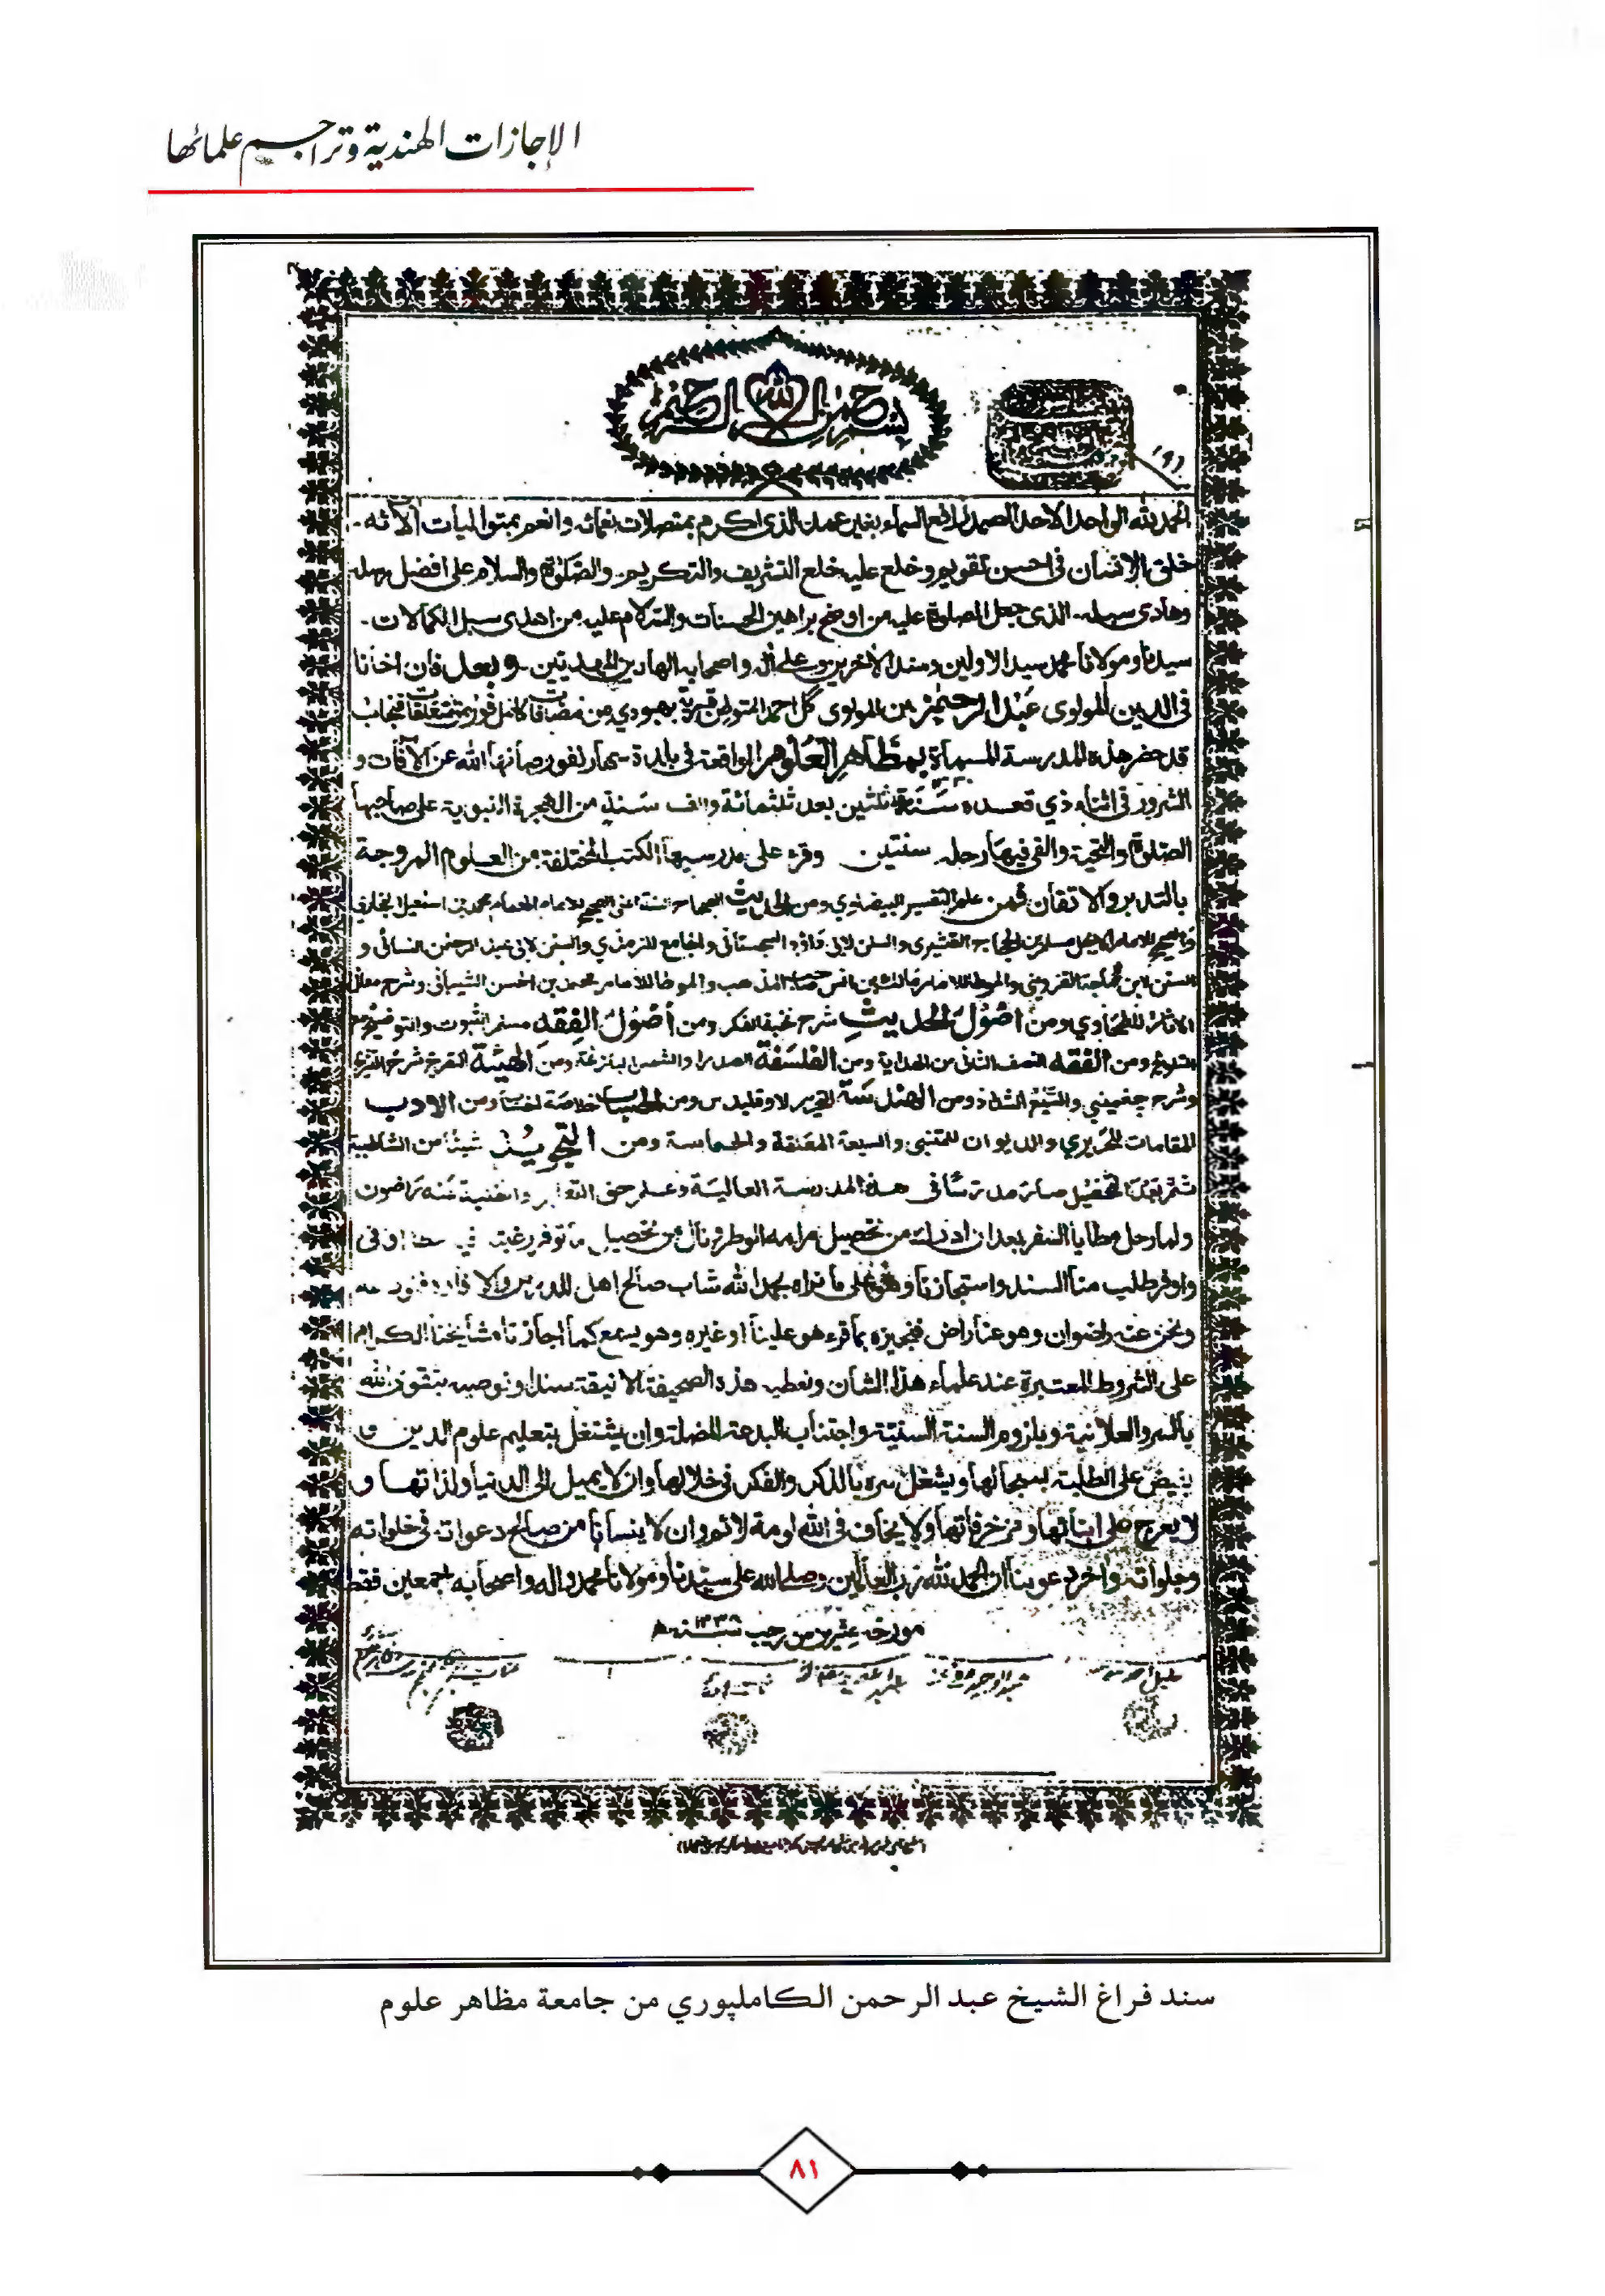 الإجازات الهندية وتراجم علمائها
بسم الله الرحمن الرحيم
الحمد لله الواحد الاحد الصمد رافع السماء بغير عمد الذي اكرم بمتصلات نعمائه وانعم بمتواليات آلائه۔
خلق الانسان في احسن تقويم وخلع عليه خلع التشريف والتكريم۔ والصلوة والسلام على افضل رسله
وهادي سبله۔ الذي جعل الصلوة عليه من اوضح براهين الحسنات والسلام عليه من اهدى سبل الكمالات۔
سيدنا ومولانا محمد سيد الاولين وسند الآخرين وعلى آله واصحابه الهادين المهديين۔ وبعد فان اخانا
في الدين المولوي عبد الرحمن بن المولوي گل احمد المتوطن قرية بهبودي من مضافات كامل فور متعلقات فنجاب
قد حضر هذه المدرسة المسماة بمظاهر العلوم الواقعة في بلدة سهارنفور صانها الله عن الآفات و
الشرور في اثناء ذي قعده سنة ثلثين بعد ثلثمائة والف سنة من الهجرة النبوية على صاحبها
الصلوة والتحية والقى فيها رحله سنتين وقرء على مدرسيها الكتب المختلفة من العلوم المروجة
بالتدبر والاتقان فمن علم التفسير البيضاوي ومن الحديث الصحاح الستة اعني الصحيح للامام الهمام محمد بن اسمعيل البخاري
والصحيح للامام الاجل مسلم بن الحجاج القشيري والسنن لابي داؤد السجستاني والجامع للترمذي والسنن لابي عبد الرحمن النسائي و
السنن لابن ماجة القزويني والموطا للامام مالك بن انس صاحب المذهب والموطا للامام محمد بن الحسن الشيباني وشرح معاني
الاثار للطحاوي ومن اصول الحديث شرح نخبة الفكر ومن اصول الفقه مسلم الثبوت والتوضيح مع
التلويح ومن الفقه النصف الثاني من الهداية ومن الفلسفة الصدرا والشمس البازغة ومن الهيئة التصريح شرح التشريح
وشرح چغميني والسبع الشداد ومن الهندسة التحرير لاوقليدس ومن الحساب خلاصة الحساب ومن الادب
المقامات للحريري والديوان للمتنبي والسبعة المعلقة والحماسة ومن التجويد شيئا من الشاطبية
ثم بعد التحصيل صار مدرسا في هذه المدرسة العالية وعلم حق التعليم
ولما رحل مطايا السفر بعد ان من تحصيل مرامه الوطر ونال من تحصيل ما توفر رغبته في
واوفر طلب منا السند واستجازنا وهو على ما نراه بحمد الله شاب صالح اهل للدرس والافادة
ونحن عنه راضون وهو عنا راض فنجيزه بما قرء هو علينا او غيره وهو يسمع كما اجازنا مشائخنا الكرام
على الشروط المعتبرة عند علماء هذا الشان ونعطيه هذه الصحيفة الانيقة سندا ونوصيه بتقوى الله
بالسر والعلانية وبلزوم السنة السنية واجتناب البدعة المضلة وان يشتغل بتعليم علوم الدين و
يفيض على الطلبة ويشغل سره بالذكر والفكر في خلالها وان لا يميل الى الدنيا ولذاتها و
لا يعرج على ابنائها ومزخرفاتها ولا يخاف في الله لومة لائم وان لا ينسانا من صالح دعواته في خلواته
وجلواته وآخر دعوينا ان الحمد لله رب العالمين وصلى الله على سيدنا ومولانا محمد واله واصحابه اجمعين فقط
مورخه عشرين من رجب سنه ١٣٣٨ ه
خليل احمد
سند فراغ الشيخ عبد الرحمن الكاملپوري من جامعة مظاهر علوم
٨١